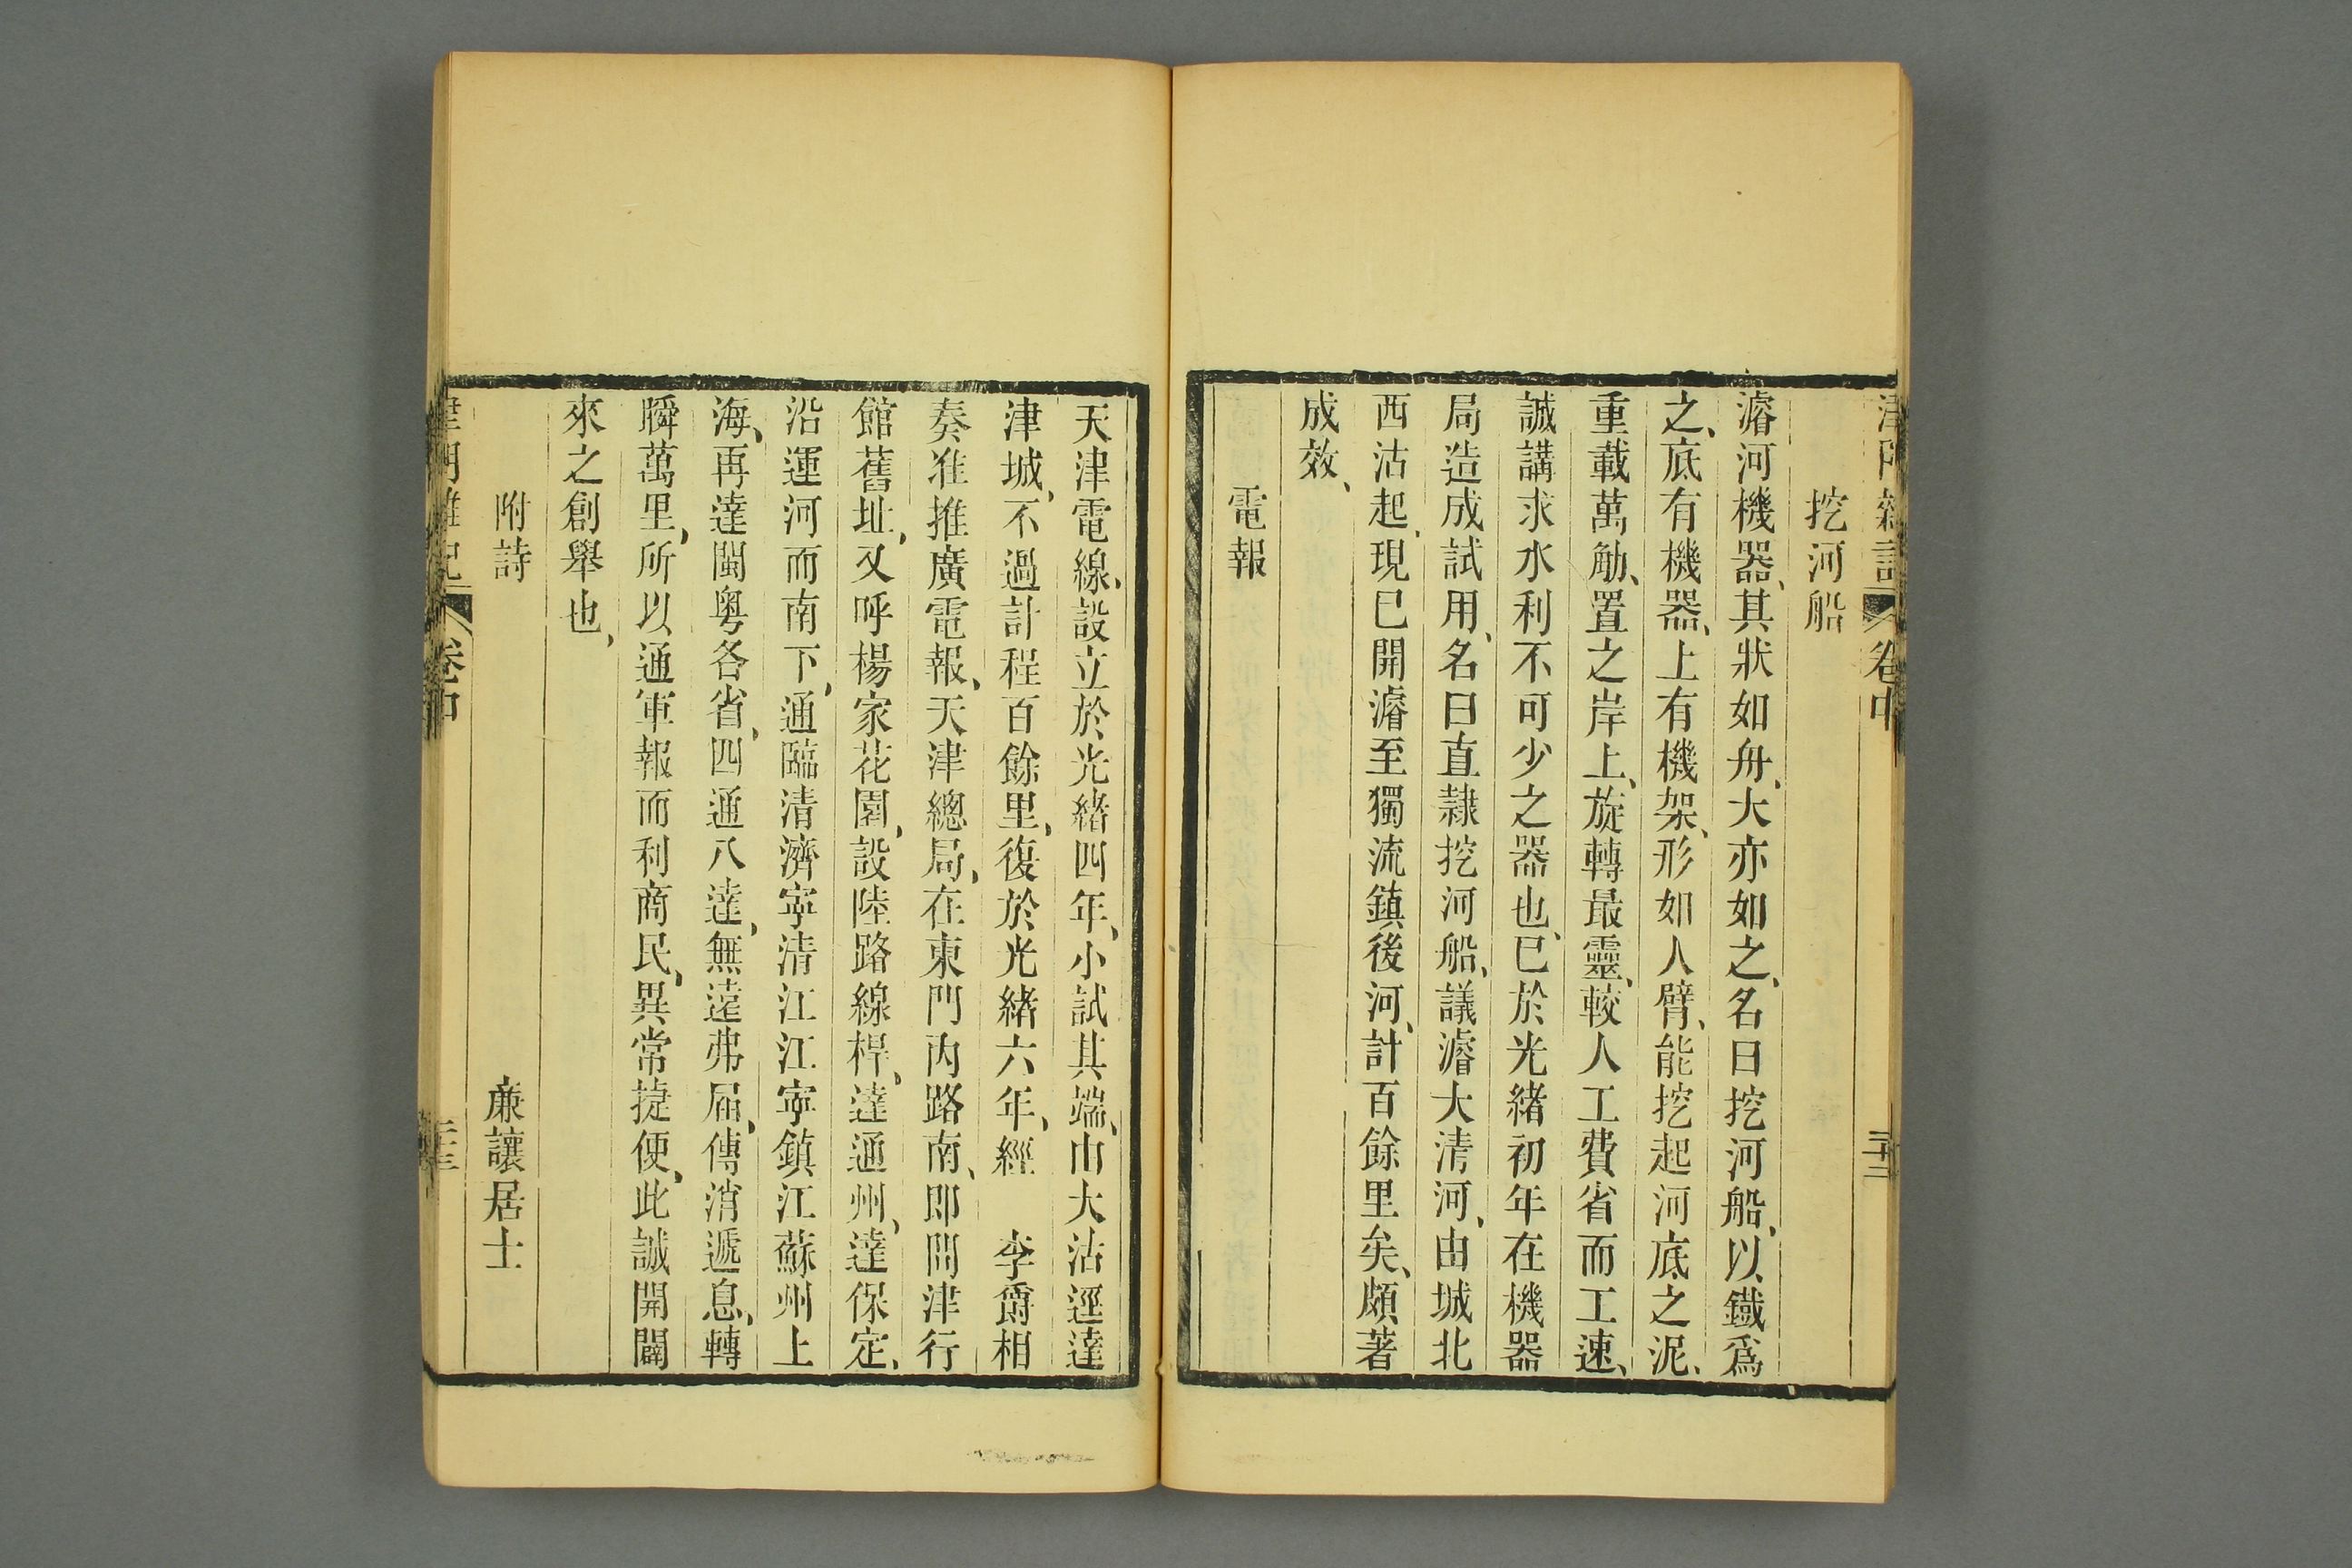 津門雜記 卷中 二十二
挖河船
濬河機器、其狀如舟、大亦如之、名曰挖河船、以鐵爲
之、底有機器、上有機架、形如人臂、能挖起河底之泥、
重載萬觔、置之岸上、旋轉最靈、較人工費省而工速、
誠講求水利不可少之器也、已於光緒初年在機器
局造成試用、名曰直隸挖河船、議濬大清河、由城北
西沽起、現已開濬至獨流鎮後河、計百餘里矣、頗著
成效、
電報
天津電線、設立於光緒四年、小試其端、由大沽逕達
津城、不過計程百餘里、復於光緒六年、經　李爵相
奏准推廣電報、天津總局、在東門內路南、即問津行
館舊址、又呼楊家花園、設陸路線桿、達通州、達保定、
沿運河而南下、通臨清濟寧清江江寧鎮江蘇州上
海、再達閩粵各省、四通八達、無遠弗屆、傳消遞息、轉
瞬萬里、所以通軍報而利商民、異常捷便、此誠開闢
來之創舉也、
附詩　廉讓居士
津門雜記 卷中